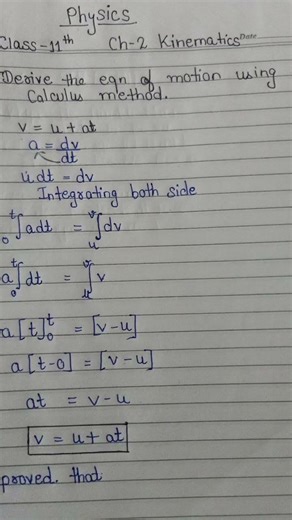 Physics
Class-11th Ch-2 Kinematics Date
Derive the eqn of motion using
Calculus method.
v = u + at
a = dv/dt
u dt = dv
Integrating both side
₀∫ᵗ adt = ᵤ∫ᵛ dv
a ₀∫ᵗ dt = ᵤ∫ᵛ v
a [t]₀ᵗ = [v-u]
a [t-0] = [v-u]
at = v-u
v = u+at
proved. that